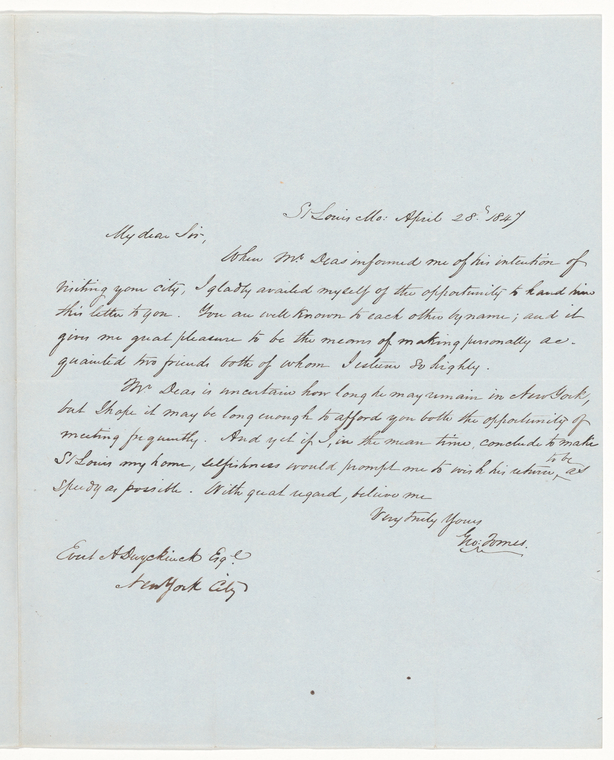 St Louis Mo: April 28th 1847
My dear Sir,
When Mr Deas informed me of his intention of
visiting your city, I gladly availed myself of the opportunity to hand him
this letter to you. You are well known to each other by name; and it
gives me great pleasure to be the means of making personally ac-
quainted two friends both of whom I esteem so highly.
Mr Deas is uncertain how long he may remain in New York,
but I hope it may be long enough to afford you both the opportunity of
meeting frequently. And yet if I, in the mean time, conclude to make
St Louis my home, selfishness would prompt me to wish his return, to be as
speedy as possible. With great regard, believe me
Very truly Yours
Geo: Tomes.
Evert A Duyckinck Esqr.
New York City